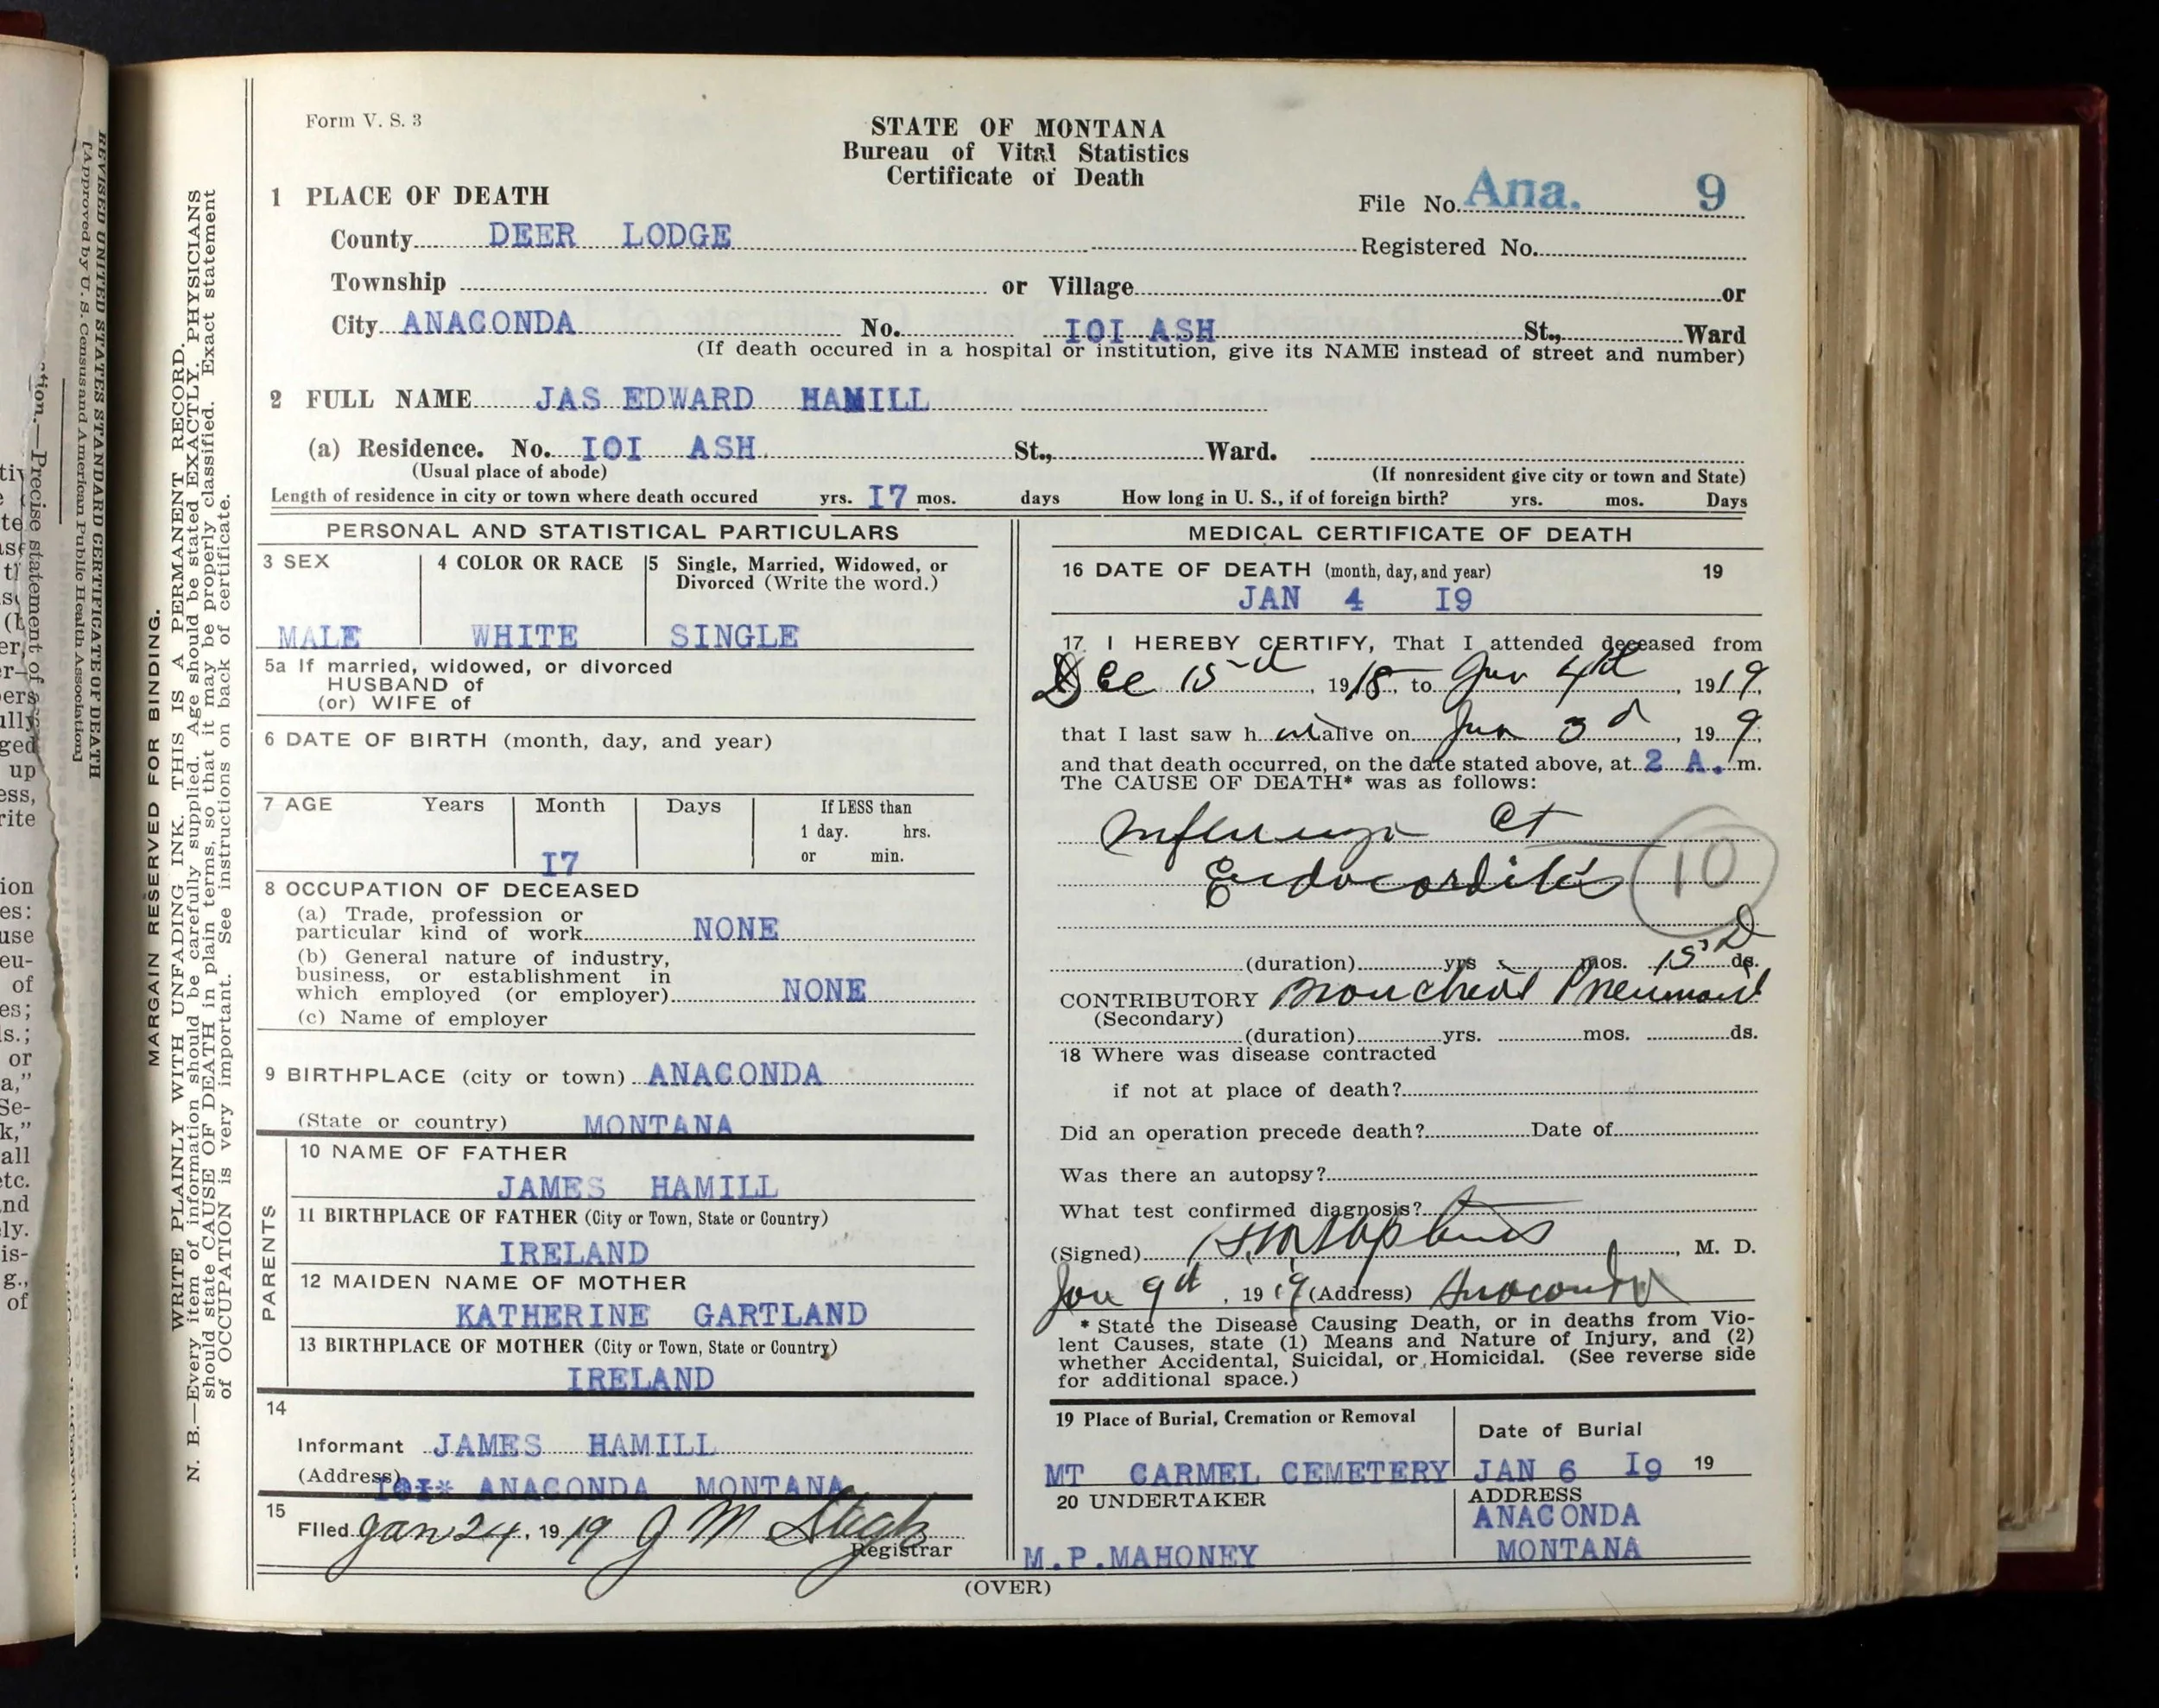 Form V. S. 3
STATE OF MONTANA
Bureau of Vital Statistics
Certificate of Death
1 PLACE OF DEATH
File No. Ana. 9
County DEER LODGE Registered No.
Township or Village or
City ANACONDA No. IOI ASH St., Ward
(If death occured in a hospital or institution, give its NAME instead of street and number)
2 FULL NAME JAS EDWARD HAMILL
(a) Residence. No. IOI ASH. St., Ward.
(Usual place of abode) (If nonresident give city or town and State)
Length of residence in city or town where death occured yrs. I7 mos. days How long in U. S., if of foreign birth? yrs. mos. Days
PERSONAL AND STATISTICAL PARTICULARS
3 SEX 4 COLOR OR RACE 5 Single, Married, Widowed, or
Divorced (Write the word.)
MALE WHITE SINGLE
5a If married, widowed, or divorced
HUSBAND of
(or) WIFE of
6 DATE OF BIRTH (month, day, and year)
7 AGE Years Month Days If LESS than
1 day. hrs.
or min.
I7
8 OCCUPATION OF DECEASED
(a) Trade, profession or
particular kind of work NONE
(b) General nature of industry,
business, or establishment in
which employed (or employer) NONE
(c) Name of employer
9 BIRTHPLACE (city or town) ANACONDA
(State or country) MONTANA
PARENTS
10 NAME OF FATHER
JAMES HAMILL
11 BIRTHPLACE OF FATHER (City or Town, State or Country)
IRELAND
12 MAIDEN NAME OF MOTHER
KATHERINE GARTLAND
13 BIRTHPLACE OF MOTHER (City or Town, State or Country)
IRELAND
14
Informant JAMES HAMILL
(Address) IOI* ANACONDA MONTANA
15
Filed Jan 24, 1919 J M
Registrar
MEDICAL CERTIFICATE OF DEATH
16 DATE OF DEATH (month, day, and year) 19
JAN 4 I9
17 I HEREBY CERTIFY, That I attended deceased from
Dec 15 , 1918, to Jan 4th , 1919,
that I last saw h im alive on Jan 3d , 19 9,
and that death occurred, on the date stated above, at 2 A. m.
The CAUSE OF DEATH* was as follows:
Influenza Et
Endocarditis 10
(duration) yrs mos. 15 D ds.
CONTRIBUTORY Bronchial Pneumonia
(Secondary)
(duration) yrs. mos. ds.
18 Where was disease contracted
if not at place of death?
Did an operation precede death? Date of
Was there an autopsy?
What test confirmed diagnosis?
(Signed) , M. D.
Jan 9d , 1919 (Address) Anaconda
* State the Disease Causing Death, or in deaths from Vio-
lent Causes, state (1) Means and Nature of Injury, and (2)
whether Accidental, Suicidal, or Homicidal. (See reverse side
for additional space.)
19 Place of Burial, Cremation or Removal Date of Burial
MT CARMEL CEMETERY JAN 6 I9 19
20 UNDERTAKER ADDRESS
M.P.MAHONEY ANACONDA
MONTANA
(OVER)
MARGAIN RESERVED FOR BINDING.
WRITE PLAINLY WITH UNFADING INK. THIS IS A PERMANENT RECORD.
N. B.—Every item of information should be carefully supplied. Age should be stated EXACTLY. PHYSICIANS
should state CAUSE OF DEATH in plain terms, so that it may be properly classified. Exact statement
of OCCUPATION is very important. See instructions on back of certificate.
REVISED UNITED STATES STANDARD CERTIFICATE OF DEATH
[Approved by U. S. Census and American Public Health Association]
ation.—Precise statement of